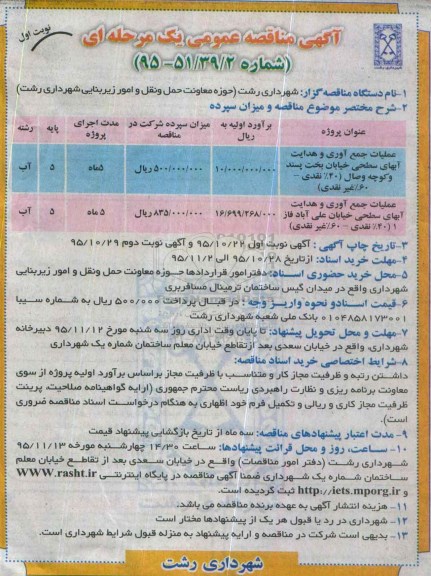 نوبت اول
آگهی مناقصه عمومی یک مرحله ای
(شماره ۹۵-۵۱/۳۹/۲)
۱-نام دستگاه مناقصه‌گزار: شهرداری رشت (حوزه معاونت حمل ونقل و امور زیربنایی شهرداری رشت)
۲-شرح مختصر موضوع مناقصه و میزان سپرده
عنوان پروژه | برآورد اولیه به ریال | میزان سپرده شرکت در مناقصه | مدت اجرای پروژه | پایه | رشته
عملیات جمع آوری و هدایت آبهای سطحی خیابان بخت پسند وکوچه وصال (۴۰٪ نقدی – ۶۰٪غیر نقدی) | ۱۰/۰۰۰/۰۰۰/۰۰۰ | ۵۰۰/۰۰۰/۰۰۰ ریال | ۵ماه | ۵ | آب
عملیات جمع آوری و هدایت آبهای سطحی خیابان علی آباد فاز ۱ (۴۰٪ نقدی – ۶۰٪غیر نقدی) | ۱۶/۶۹۹/۲۶۸/۰۰۰ | ۸۳۵/۰۰۰/۰۰۰ ریال | ۵ ماه | ۵ | آب
۳-تاریخ چاپ آگهی : آگهی نوبت اول ۹۵/۱۰/۲۲ و آگهی نوبت دوم ۹۵/۱۰/۲۹
۴-مهلت خرید اسناد: ازتاریخ ۹۵/۱۰/۲۸ الی ۹۵/۱۱/۲
۵-محل خرید حضوری اسناد: دفترامور قراردادها حوزه معاونت حمل ونقل و امور زیربنایی
شهرداری واقع در میدان گیس ساختمان ترمینال مسافربری
۶-قیمت اسنادو نحوه واریز وجه : در قبال پرداخت ۵۰۰/۰۰۰ ریال به شماره سیبا
۰۱۰۴۸۵۸۱۷۳۰۰۱ بانک ملی شعبه شهرداری رشت
۷-مهلت و محل تحویل پیشنهاد: تا پایان وقت اداری روز سه شنبه مورخ ۹۵/۱۱/۱۲ دبیرخانه
شهرداری، واقع در خیابان سعدی بعد ازتقاطع خیابان معلم ساختمان شماره یک شهرداری
۸-شرایط اختصاصی خرید اسناد مناقصه:
داشتن رتبه و ظرفیت مجاز کار و متناسب با ظرفیت مجاز براساس برآورد اولیه پروژه از سوی
معاونت برنامه ریزی و نظارت راهبردی ریاست محترم جمهوری (ارایه گواهینامه صلاحیت، پرینت
ظرفیت مجاز کاری و ریالی و تکمیل فرم خود اظهاری به هنگام درخواست اسناد مناقصه ضروری
است).
۹- مدت اعتبار پیشنهادهای مناقصه: سه ماه از تاریخ بازگشایی پیشنهاد قیمت
۱۰- ساعت، روز و محل قرائت پیشنهادها: ساعت ۱۴/۳۰ چهارشنبه مورخه ۹۵/۱۱/۱۳
شهرداری رشت (دفتر امور مناقصات) واقع در خیابان سعدی بعد از تقاطع خیابان معلم
ساختمان شماره یک شهرداری ضمنا آگهی مناقصه در پایگاه اینترنتی WWW.rasht.ir
و http://iets.mporg.ir ثبت گردیده است.
۱۱- هزینه انتشار آگهی به عهده برنده مناقصه می باشد.
۱۲- شهرداری در رد یا قبول هر یک از پیشنهادها مختار است
۱۳- بدیهی است شرکت در مناقصه و ارایه پیشنهاد به منزله قبول شرایط شهرداری است.
شهرداری رشت